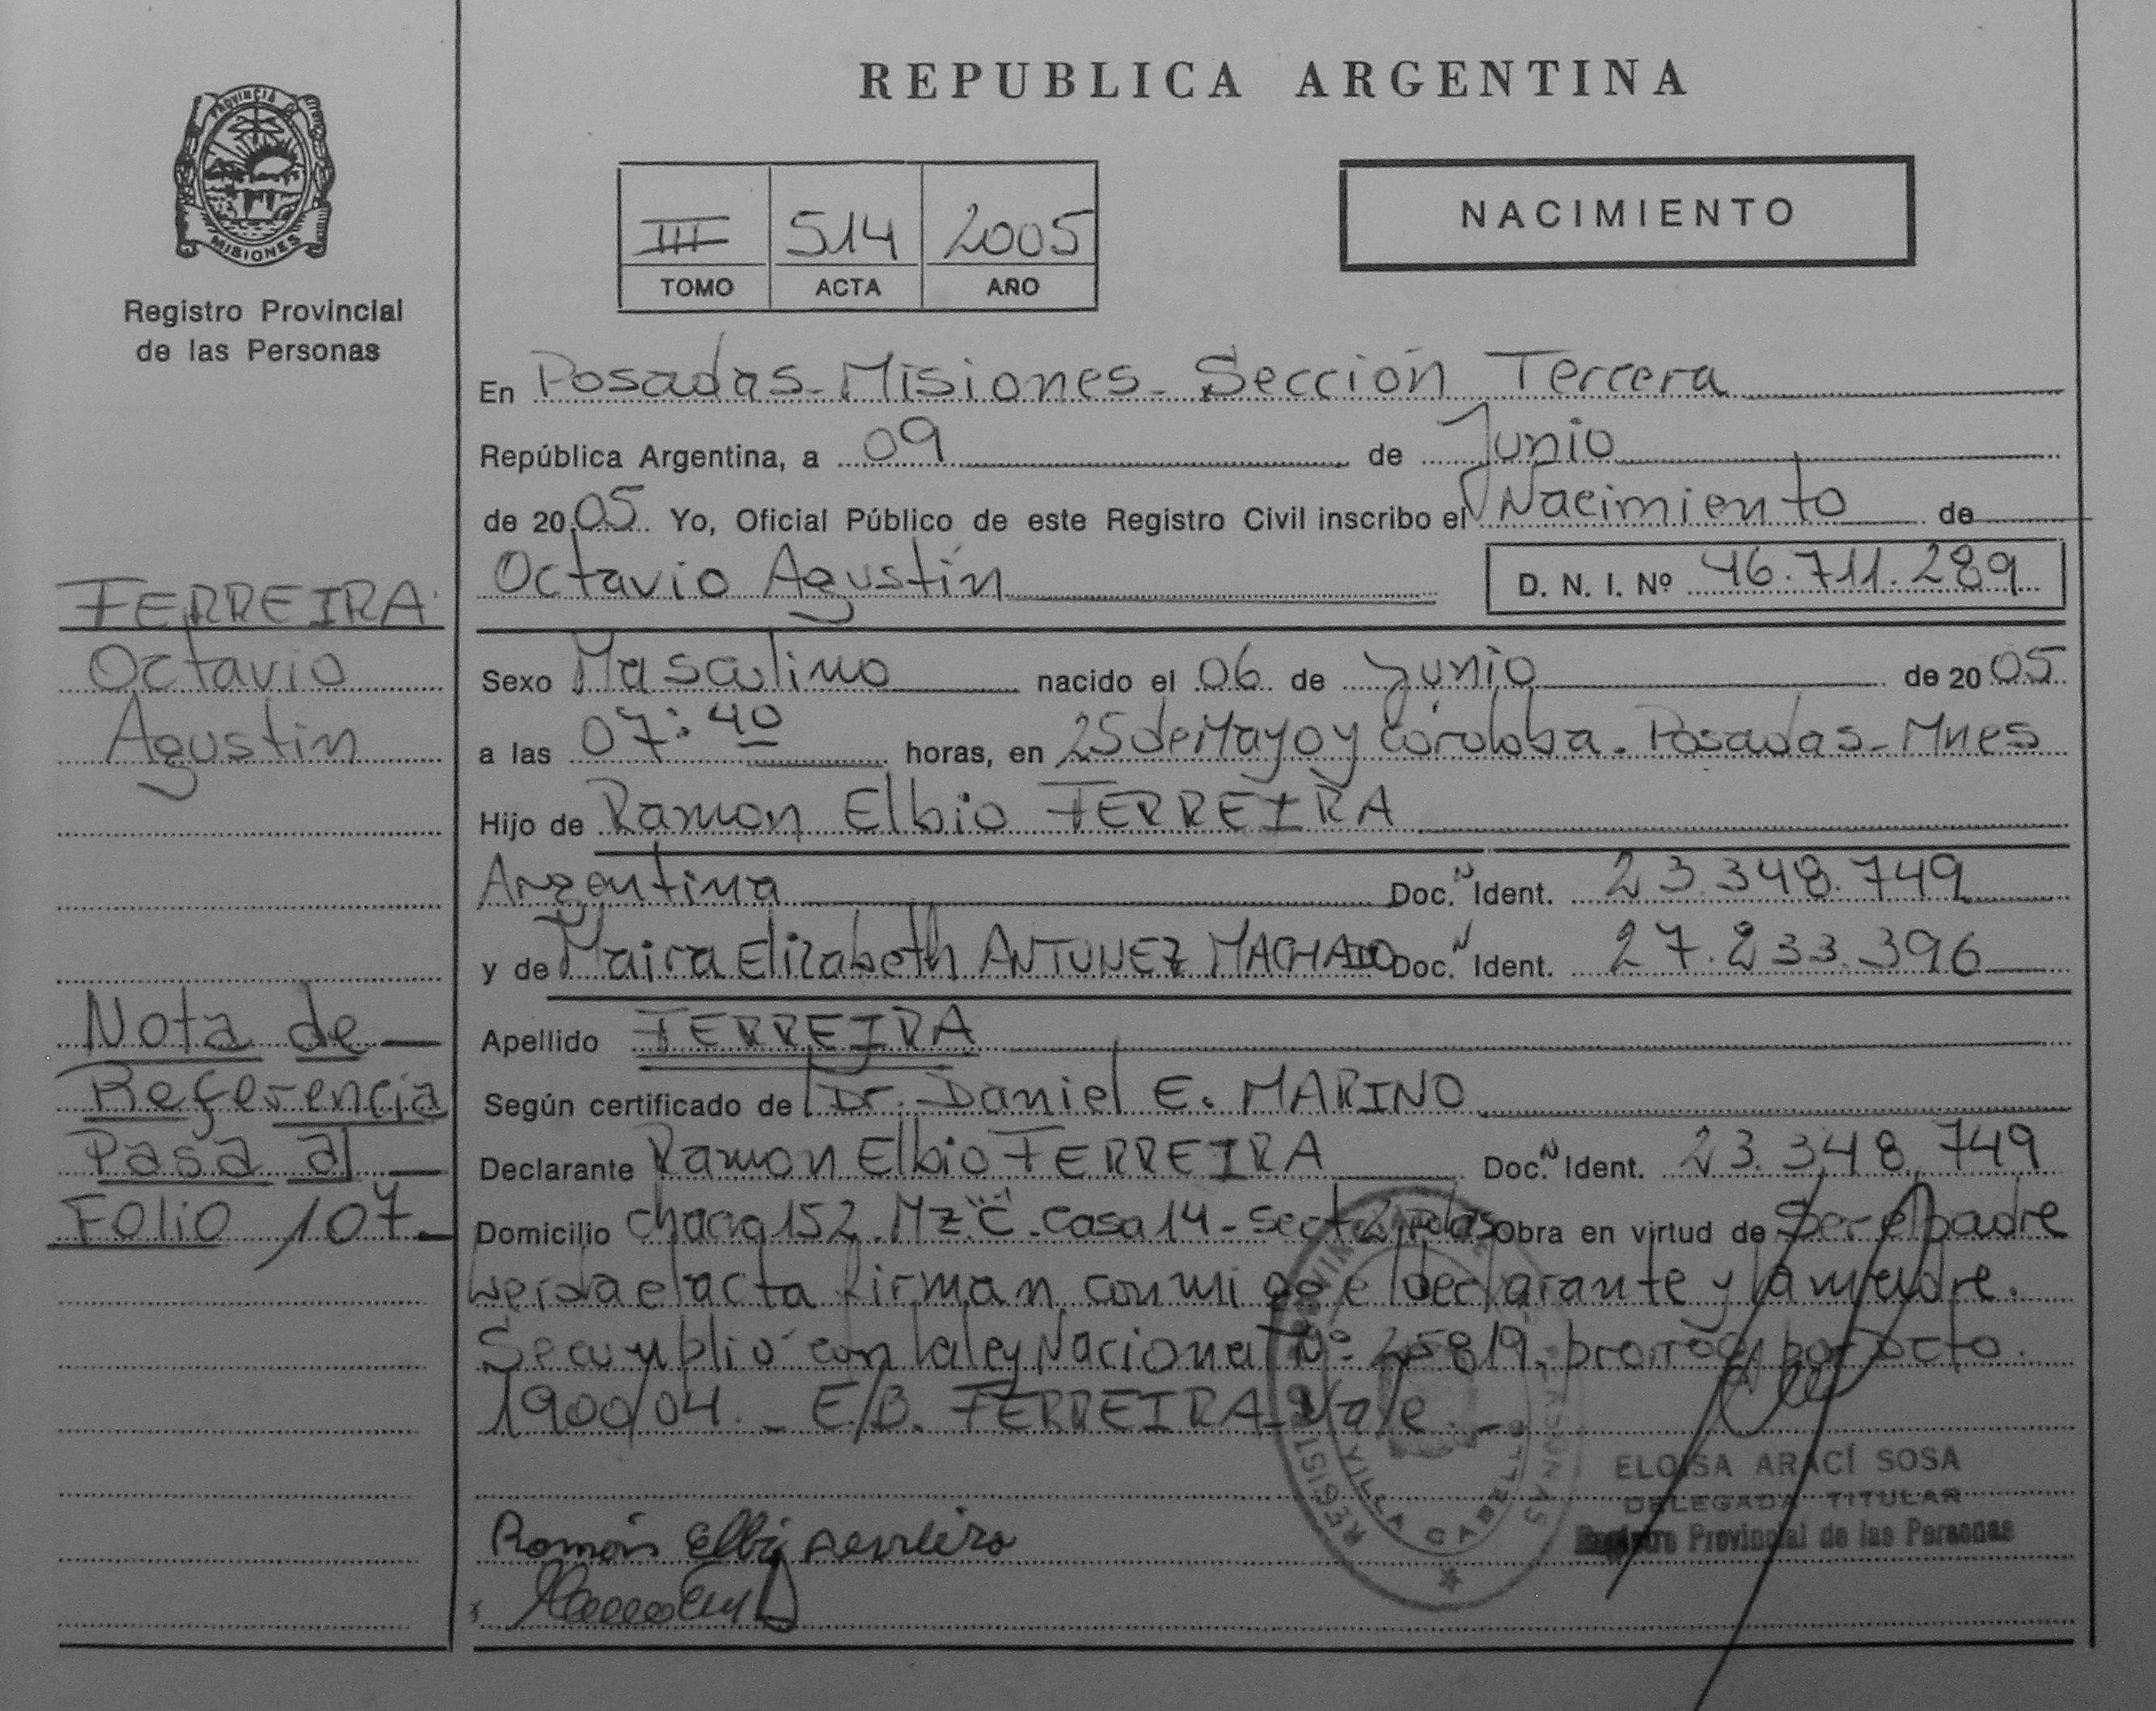 PROVINCIA DE
MISIONES
Registro Provincial
de las Personas
REPUBLICA ARGENTINA
III 514 2005
TOMO ACTA AÑO
NACIMIENTO
En Posadas - Misiones - Sección Tercera
República Argentina, a 09 de Junio
de 2005 Yo, Oficial Público de este Registro Civil inscribo el Nacimiento de
Octavio Agustín D. N. I. Nº 46.711.289
FERREIRA
Octavio
Agustin
Sexo Masculino nacido el 06 de Junio de 2005
a las 07:40 horas, en 25 de Mayo y Córdoba. Posadas - Mnes
Hijo de Ramon Elbio FERREIRA
Argentina Doc. N Ident. 23.348.749
y de Maira Elizabeth ANTUNEZ MACHADO Doc. N Ident. 27.233.396
Apellido FERREIRA
Según certificado de Dr. Daniel E. MARINO
Declarante Ramon Elbio FERREIRA Doc. N Ident. 23.348.749
Domicilio chacra 152. Mz "C" - casa 14 - Obra en virtud de Ser el padre
el acta firman conmigo el declarante y la madre.
Se cumplió con la ley Nacional Nº 25819, por Dcto.
1900/04. _ E/B. FERREIRA Vale. _
Nota de
Referencia
Pasa al
Folio 107
REGIST
VILLA CABELLO
ELOISA ARACÍ SOSA
DELEGADA TITULAR
Registro Provincial de las Personas
Ramón Elbio Ferreira